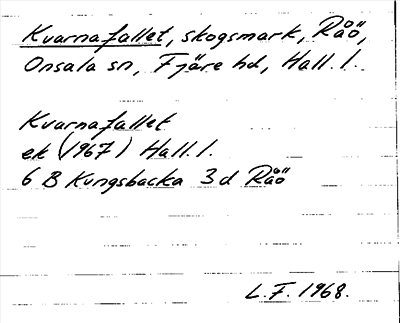 Kvarnafallet, skogsmark, Råö,
Onsala sn, Fjäre hd, Hall. l.
Kvarnafallet
ek (1967) Hall. l.
6 B Kungsbacka 3 d Råö
L.F. 1968.